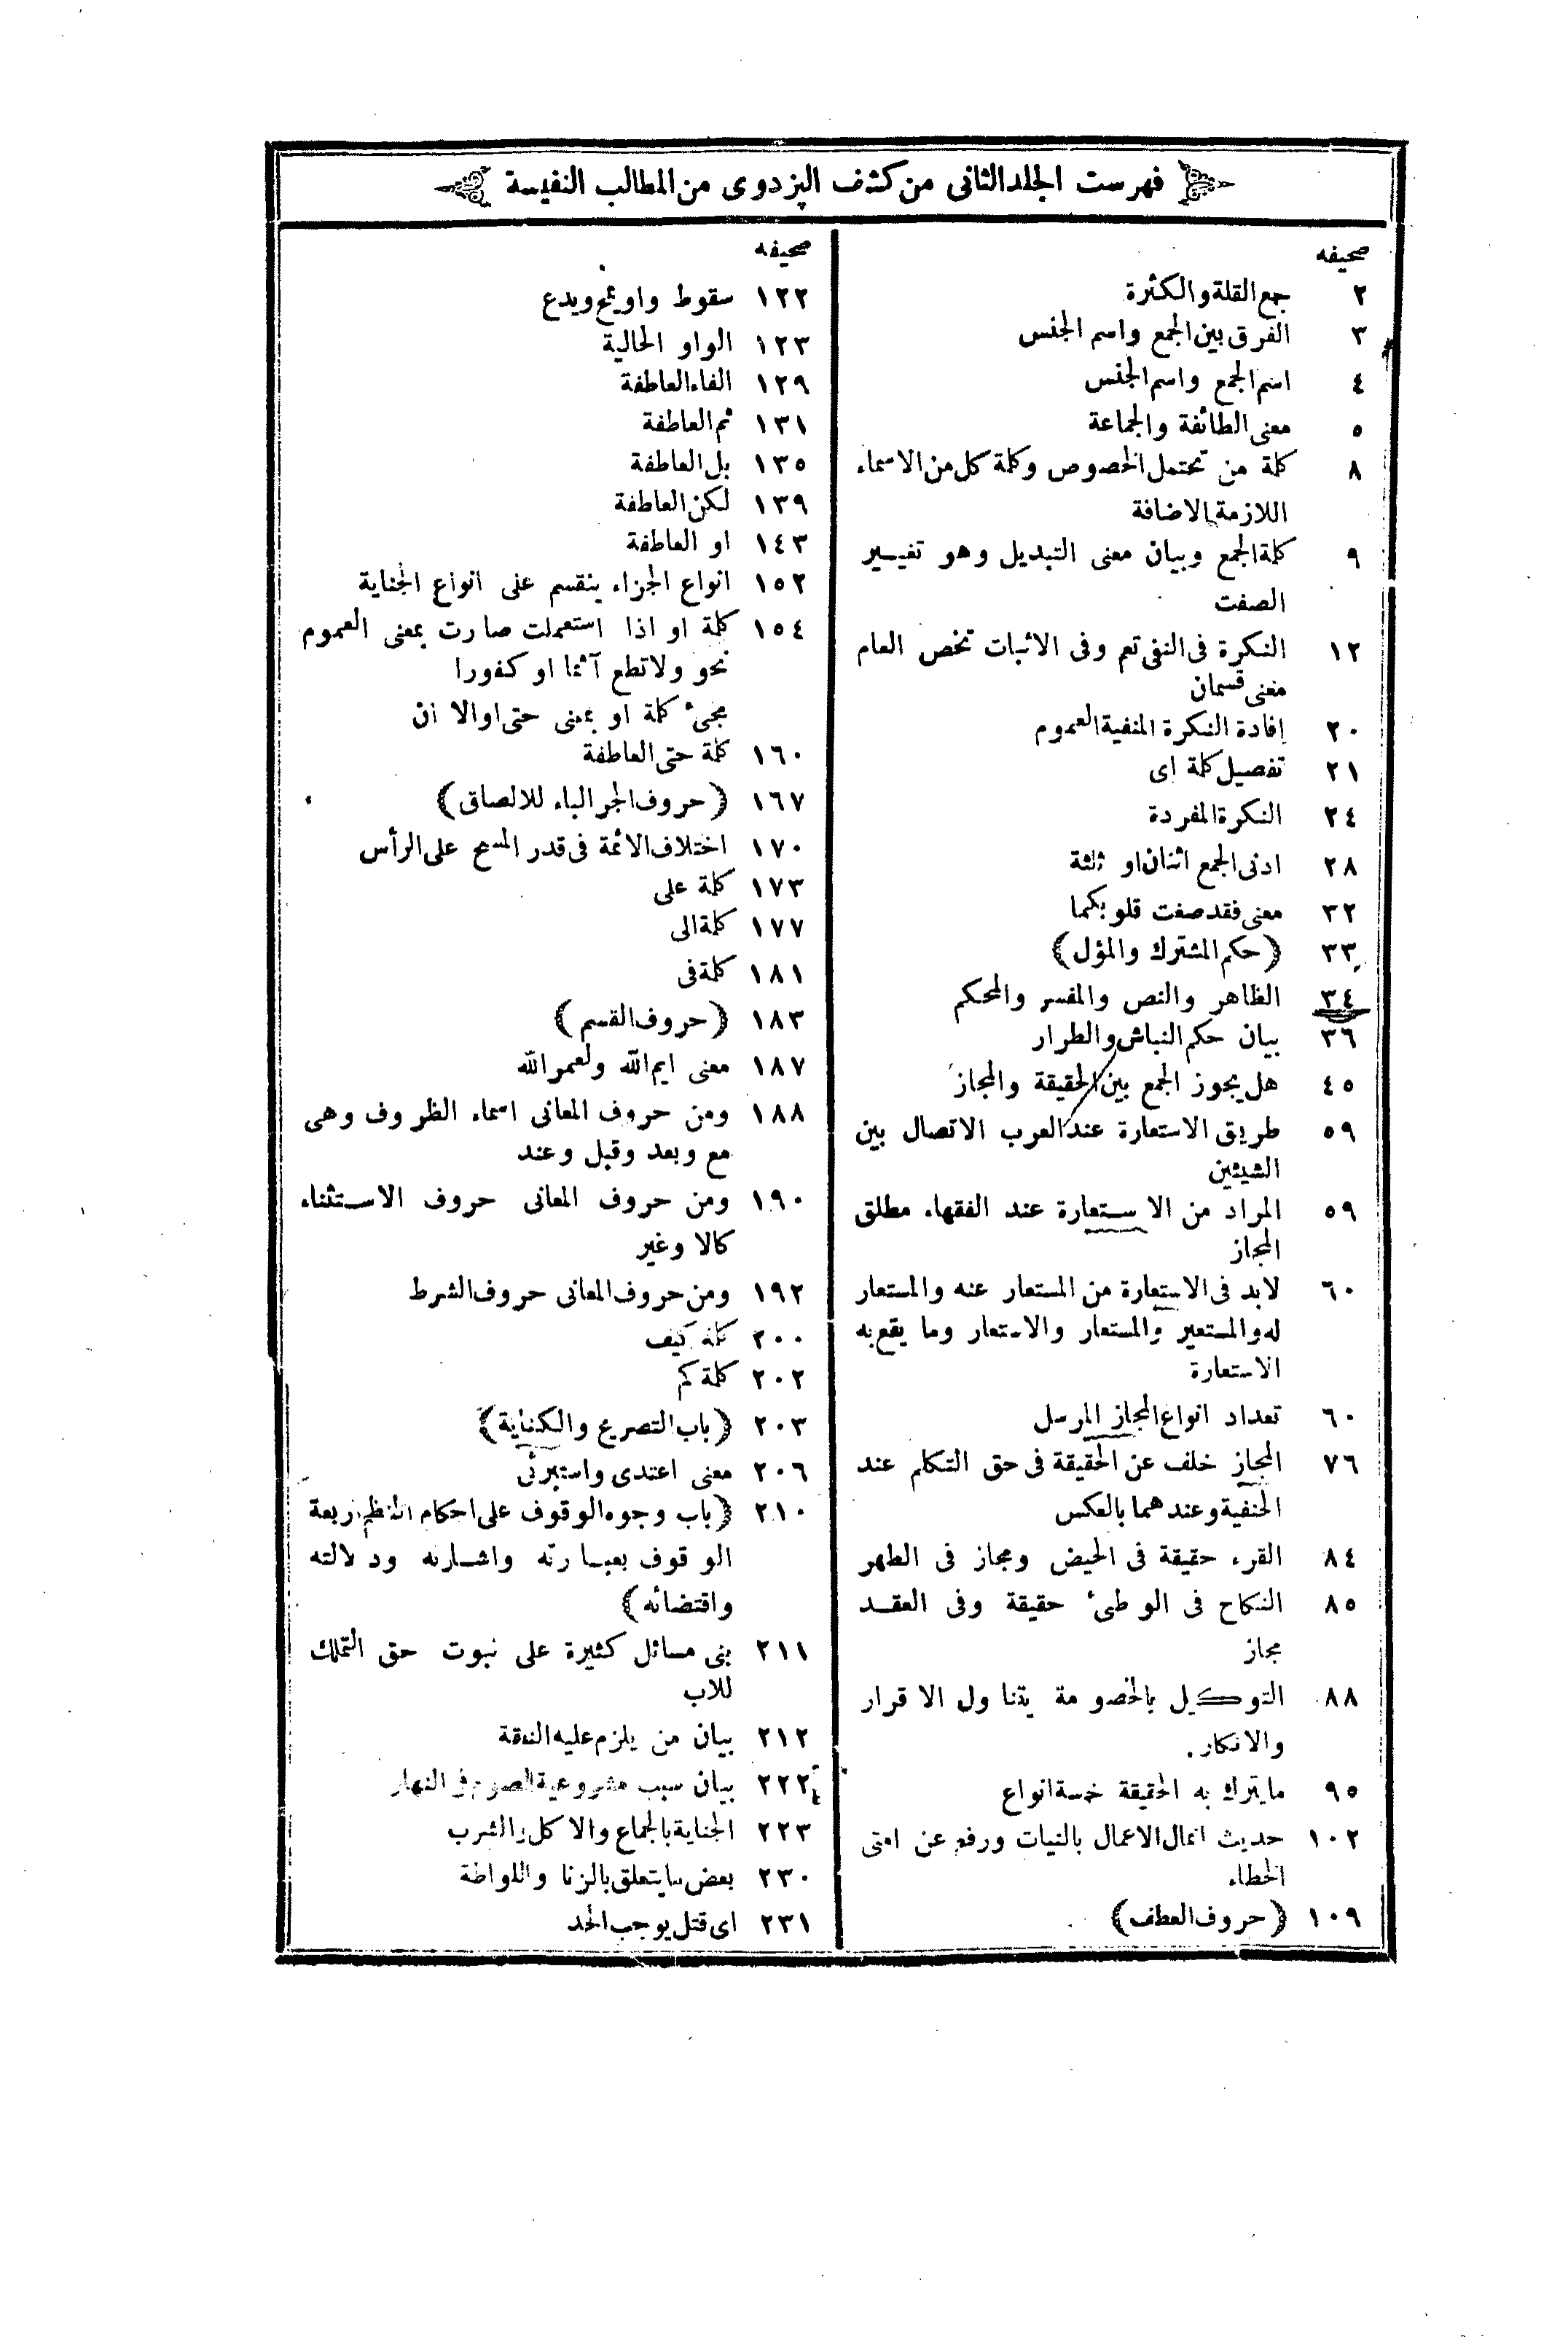 فهرست الجلد الثانى من كشف البزدوى من المطالب النفيسة
صحيفه
٢ جمع القلة والكثرة
٣ الفرق بين الجمع واسم الجنس
٤ اسم الجمع واسم الجنس
٥ معنى الطائفة والجماعة
٨ كلمة من تحتمل الخصوص وكلمة كل من الاسماء
اللازمة الاضافة
٩ كلمة الجمع وبيان معنى التبديل وهو تغيير
الصفت
١٢ النكرة فى النفى تعم وفى الاثبات تخص العام
معنى قسمان
٢٠ إفادة النكرة المنفية العموم
٢١ تفصيل كلمة اى
٢٤ النكرة المفردة
٢٨ ادنى الجمع اثنان او ثلثة
٣٢ معنى فقد صغت قلوبكما
٣٣ (حكم المشترك والمؤل)
٣٤ الظاهر والنص والمفسر والمحكم
٣٦ بيان حكم النباش والطرار
٤٥ هل يجوز الجمع بين الحقيقة والمجاز
٥٩ طريق الاستعارة عند العرب الاتصال بين
الشيئين
٥٩ المراد من الاستعارة عند الفقهاء مطلق
المجاز
٦٠ لابد فى الاستعارة من المستعار عنه والمستعار
له والمستعير والمستعار والاستعار وما يقع به
الاستعارة
٦٠ تعداد انواع المجاز المرسل
٧٦ المجاز خلف عن الحقيقة فى حق التكلم عند
الحنفية وعندهما بالعكس
٨٤ القرء حقيقة فى الحيض ومجاز فى الطهر
٨٥ النكاح فى الوطئ حقيقة وفى العقد
مجاز
٨٨ التوكيل بالخصومة يتناول الاقرار
والانكار.
٩٥ مايترك به الحقيقة خمسة انواع
١٠٢ حديث انمال الاعمال بالنيات ورفع عن امتى
الخطاء
١٠٩ (حروف العطف)
صحيفه
١٢٢ سقوط واو يمح ويدع
١٢٣ الواو الحالية
١٢٩ الفاء العاطفة
١٣١ ثم العاطفة
١٣٥ بل العاطفة
١٣٩ لكن العاطفة
١٤٣ او العاطفة
١٥٢ انواع الجزاء ينقسم على انواع الجناية
١٥٤ كلمة او اذا استعملت صارت بمعنى العموم
نحو ولا تطع آثما او كفورا
مجئ كلمة او بمعنى حتى او الا ان
١٦٠ كلمة حتى العاطفة
١٦٧ (حروف الجر الباء للالصاق)
١٧٠ اختلاف الائمة فى قدر المسح على الرأس
١٧٣ كلمة على
١٧٧ كلمة الى
١٨١ كلمة فى
١٨٣ (حروف القسم)
١٨٧ معنى ايم الله ولعمر الله
١٨٨ ومن حروف المعانى اسماء الظروف وهى
مع وبعد وقبل وعند
١٩٠ ومن حروف المعانى حروف الاستثناء
كالا وغير
١٩٢ ومن حروف المعانى حروف الشرط
٢٠٠ كلمة كيف
٢٠٢ كلمة كم
٢٠٣ (باب التصريع والكناية)
٢٠٦ معنى اعتدى واستبرئى
٢١٠ (باب وجوه الوقوف على احكام النظم اربعة
الوقوف بعبارته واشارته ودلالته
واقتضائه)
٢١١ بنى مسائل كثيرة على نبوت حق التملك
للاب
٢١٢ بيان من يلزم عليه النفقة
٢٢٢ بيان سبب مشروعية الصوم فى النهار
٢٢٣ الجناية بالجماع والاكل والشرب
٢٣٠ بعض مايتعلق بالزنا واللواطة
٢٣١ اى قتل يوجب الحد